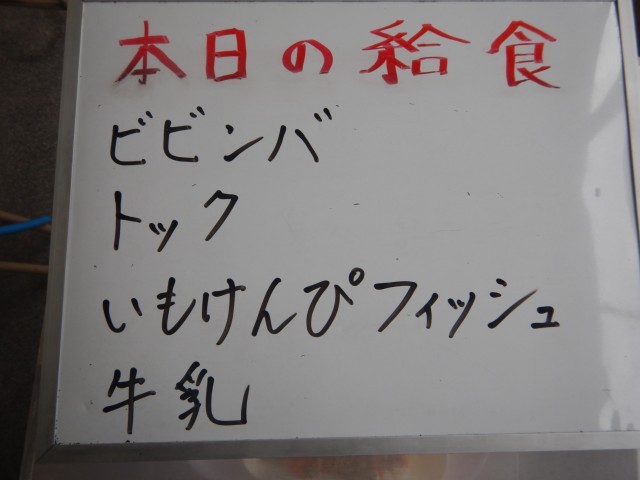 本日の給食
ビビンバ
トック
いもけんぴフィッシュ
牛乳